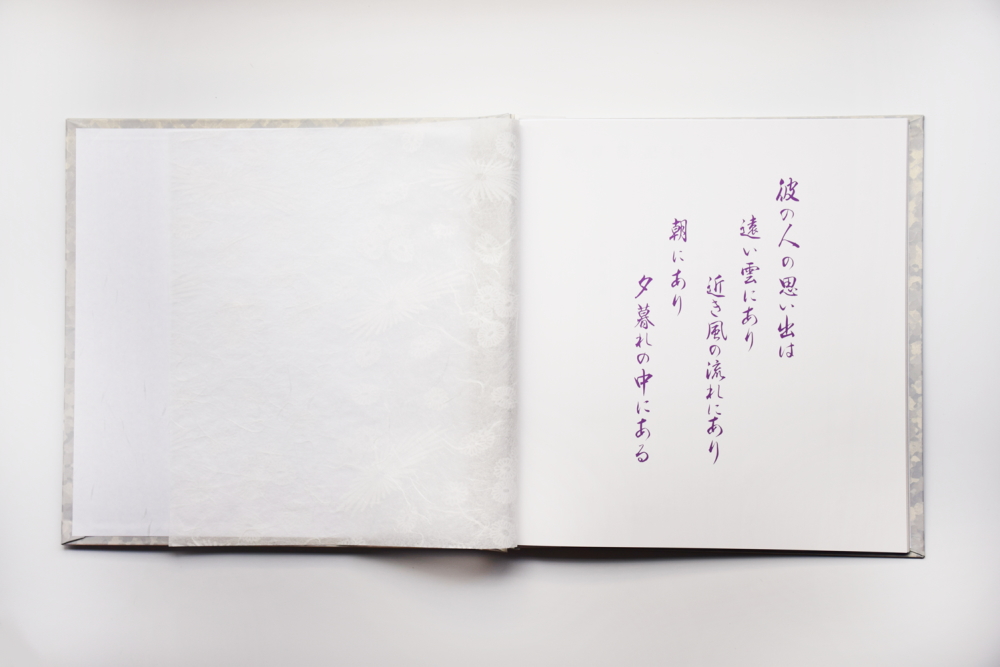 彼の人の思い出は
遠い雲にあり
近き風の流れにあり
朝にあり
夕暮れの中にある